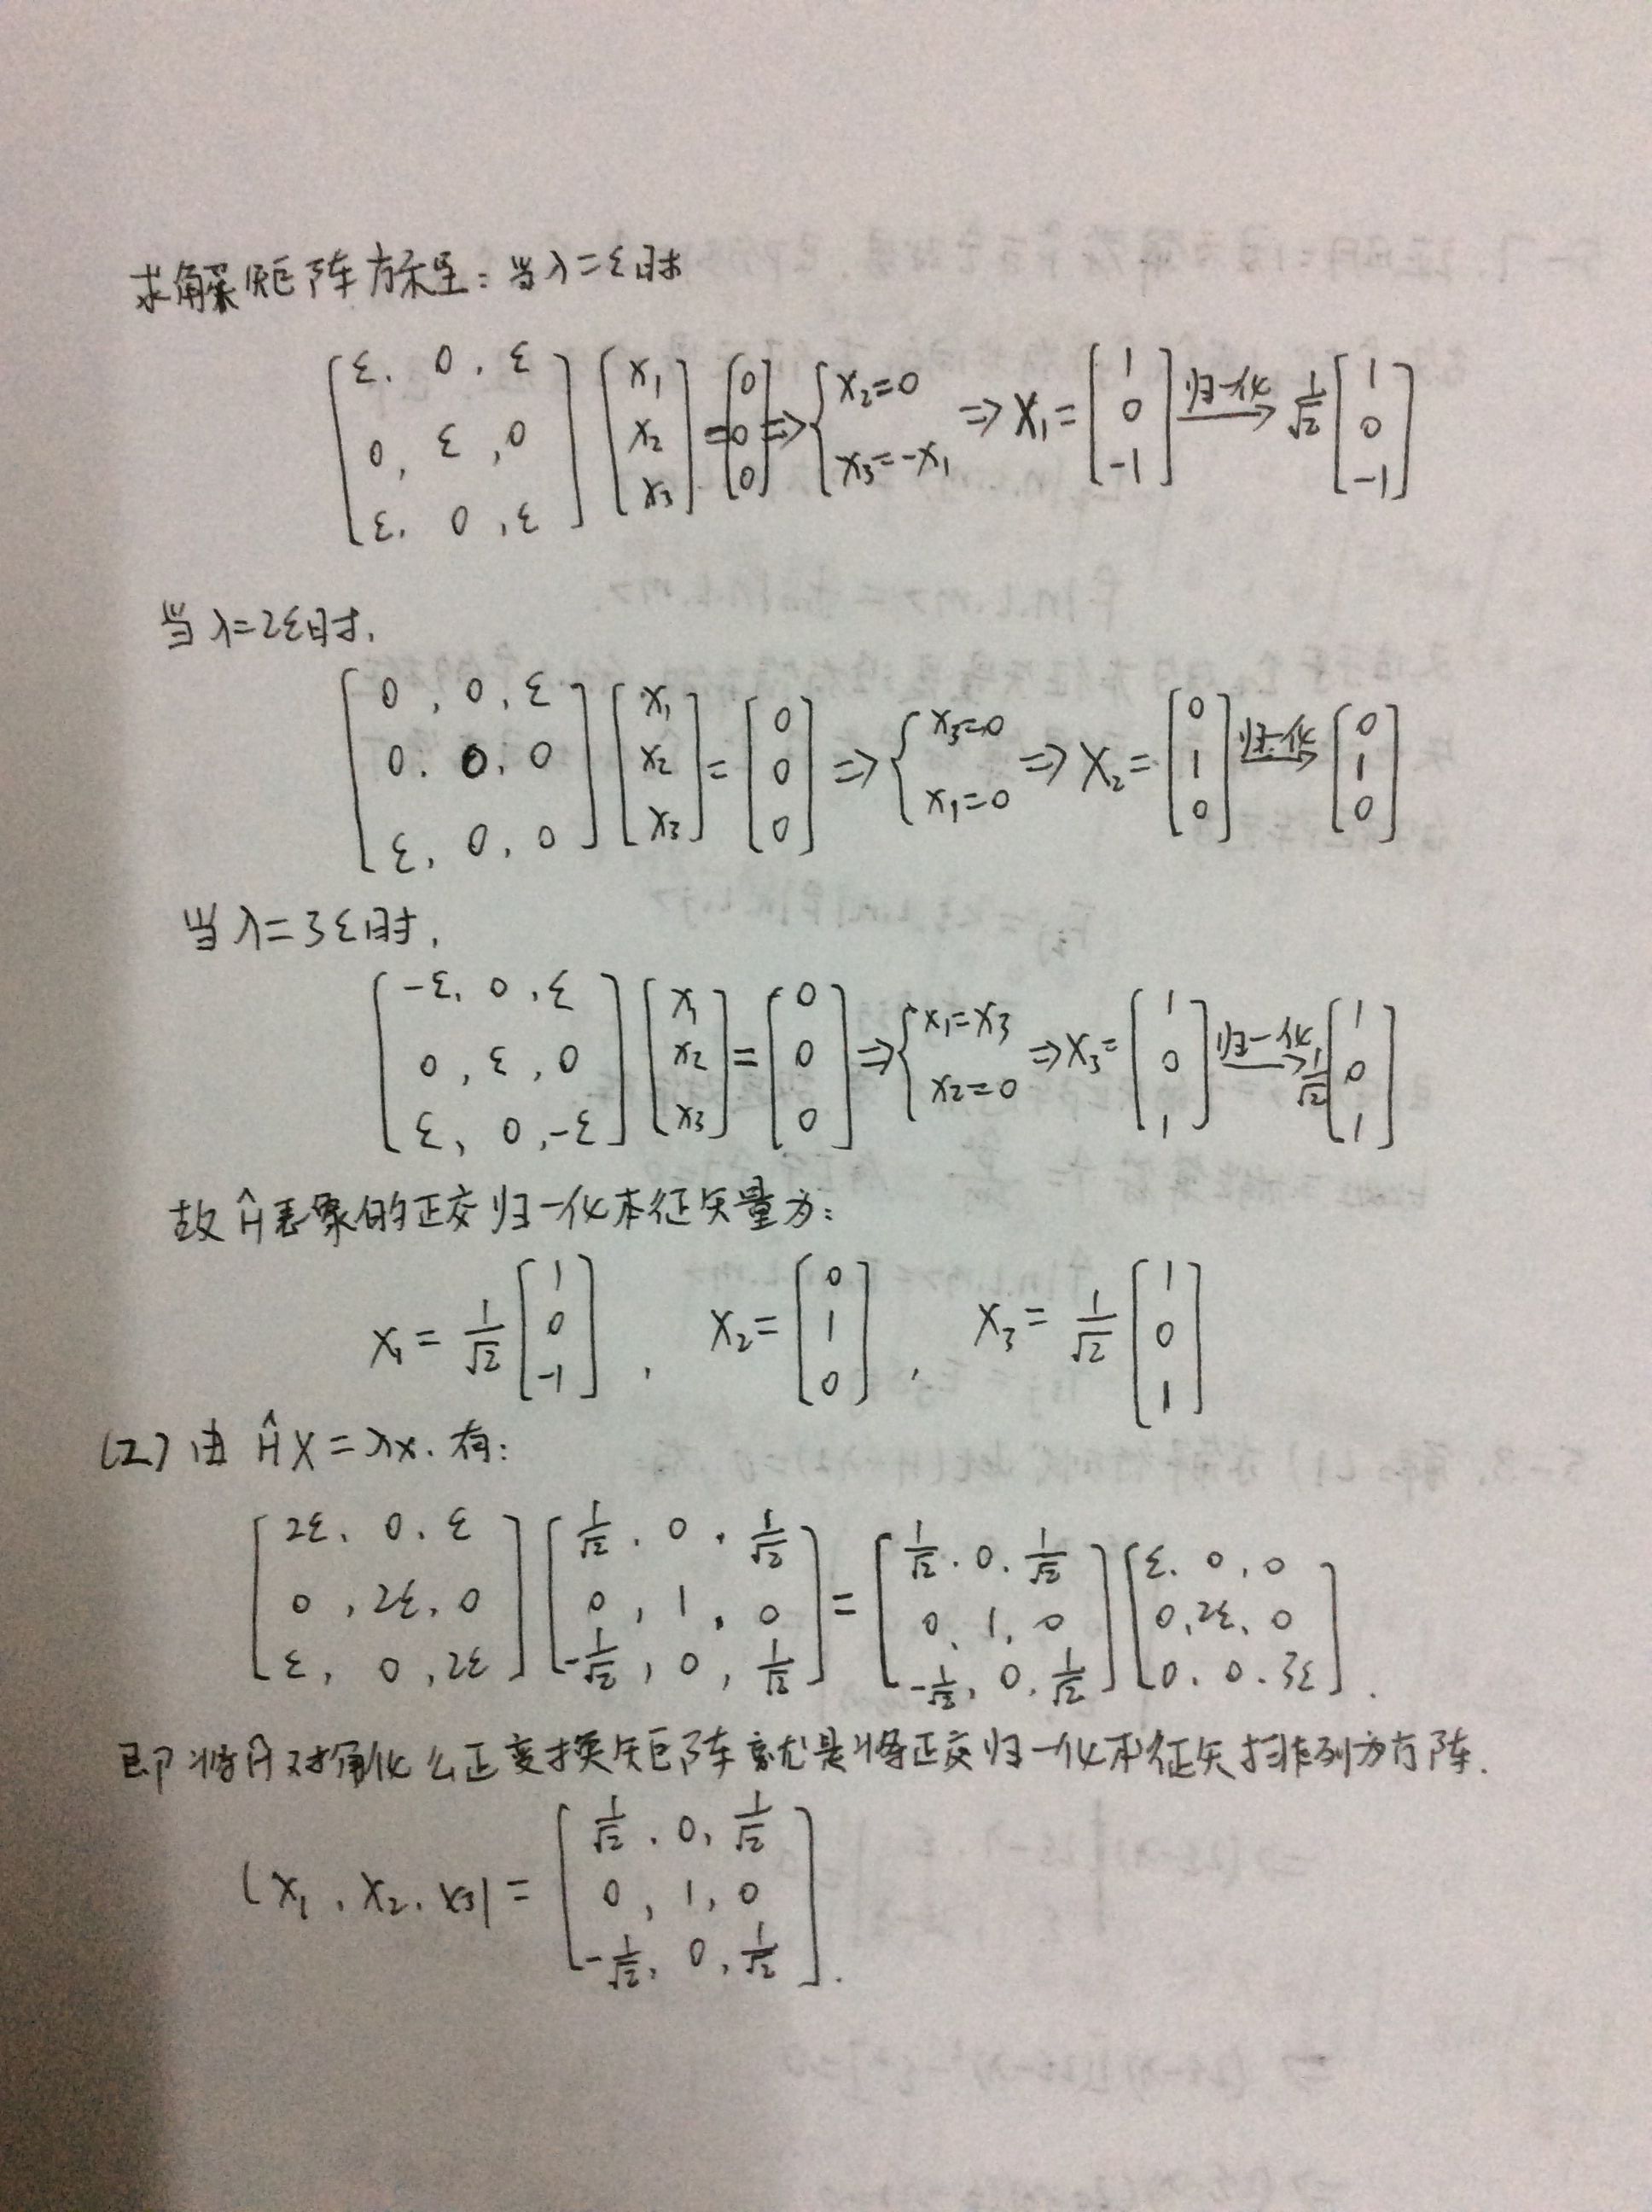 求解矩阵方程：当λ=ε时
[ε, 0, ε; 0, ε, 0; ε, 0, ε] [x₁; x₂; x₃] = [0; 0; 0] ⇒ { x₂=0; x₃=-x₁ ⇒ X₁= [1; 0; -1] 归一化→ 1/√2 [1; 0; -1]
当λ=2ε时,
[0, 0, ε; 0, 0, 0; ε, 0, 0] [x₁; x₂; x₃] = [0; 0; 0] ⇒ { x₃=0; x₁=0 ⇒ X₂= [0; 1; 0] 归一化→ [0; 1; 0]
当λ=3ε时,
[-ε, 0, ε; 0, ε, 0; ε, 0, -ε] [x₁; x₂; x₃] = [0; 0; 0] ⇒ { x₁=x₃; x₂=0 ⇒ X₃= [1; 0; 1] 归一化→ 1/√2 [1; 0; 1]
故Ĥ表象的正交归一化本征矢量为：
X₁ = 1/√2 [1; 0; -1], X₂ = [0; 1; 0], X₃ = 1/√2 [1; 0; 1]
(2) 由 ĤX = λx. 有：
[2ε, 0, ε; 0, 2ε, 0; ε, 0, 2ε] [1/√2, 0, 1/√2; 0, 1, 0; -1/√2, 0, 1/√2] = [1/√2, 0, 1/√2; 0, 1, 0; -1/√2, 0, 1/√2] [ε, 0, 0; 0, 2ε, 0; 0, 0, 3ε].
即将Ĥ对角化么正变换矩阵就是将正交归一化本征矢排列为方阵.
(x₁, x₂, x₃) = [1/√2, 0, 1/√2; 0, 1, 0; -1/√2, 0, 1/√2].